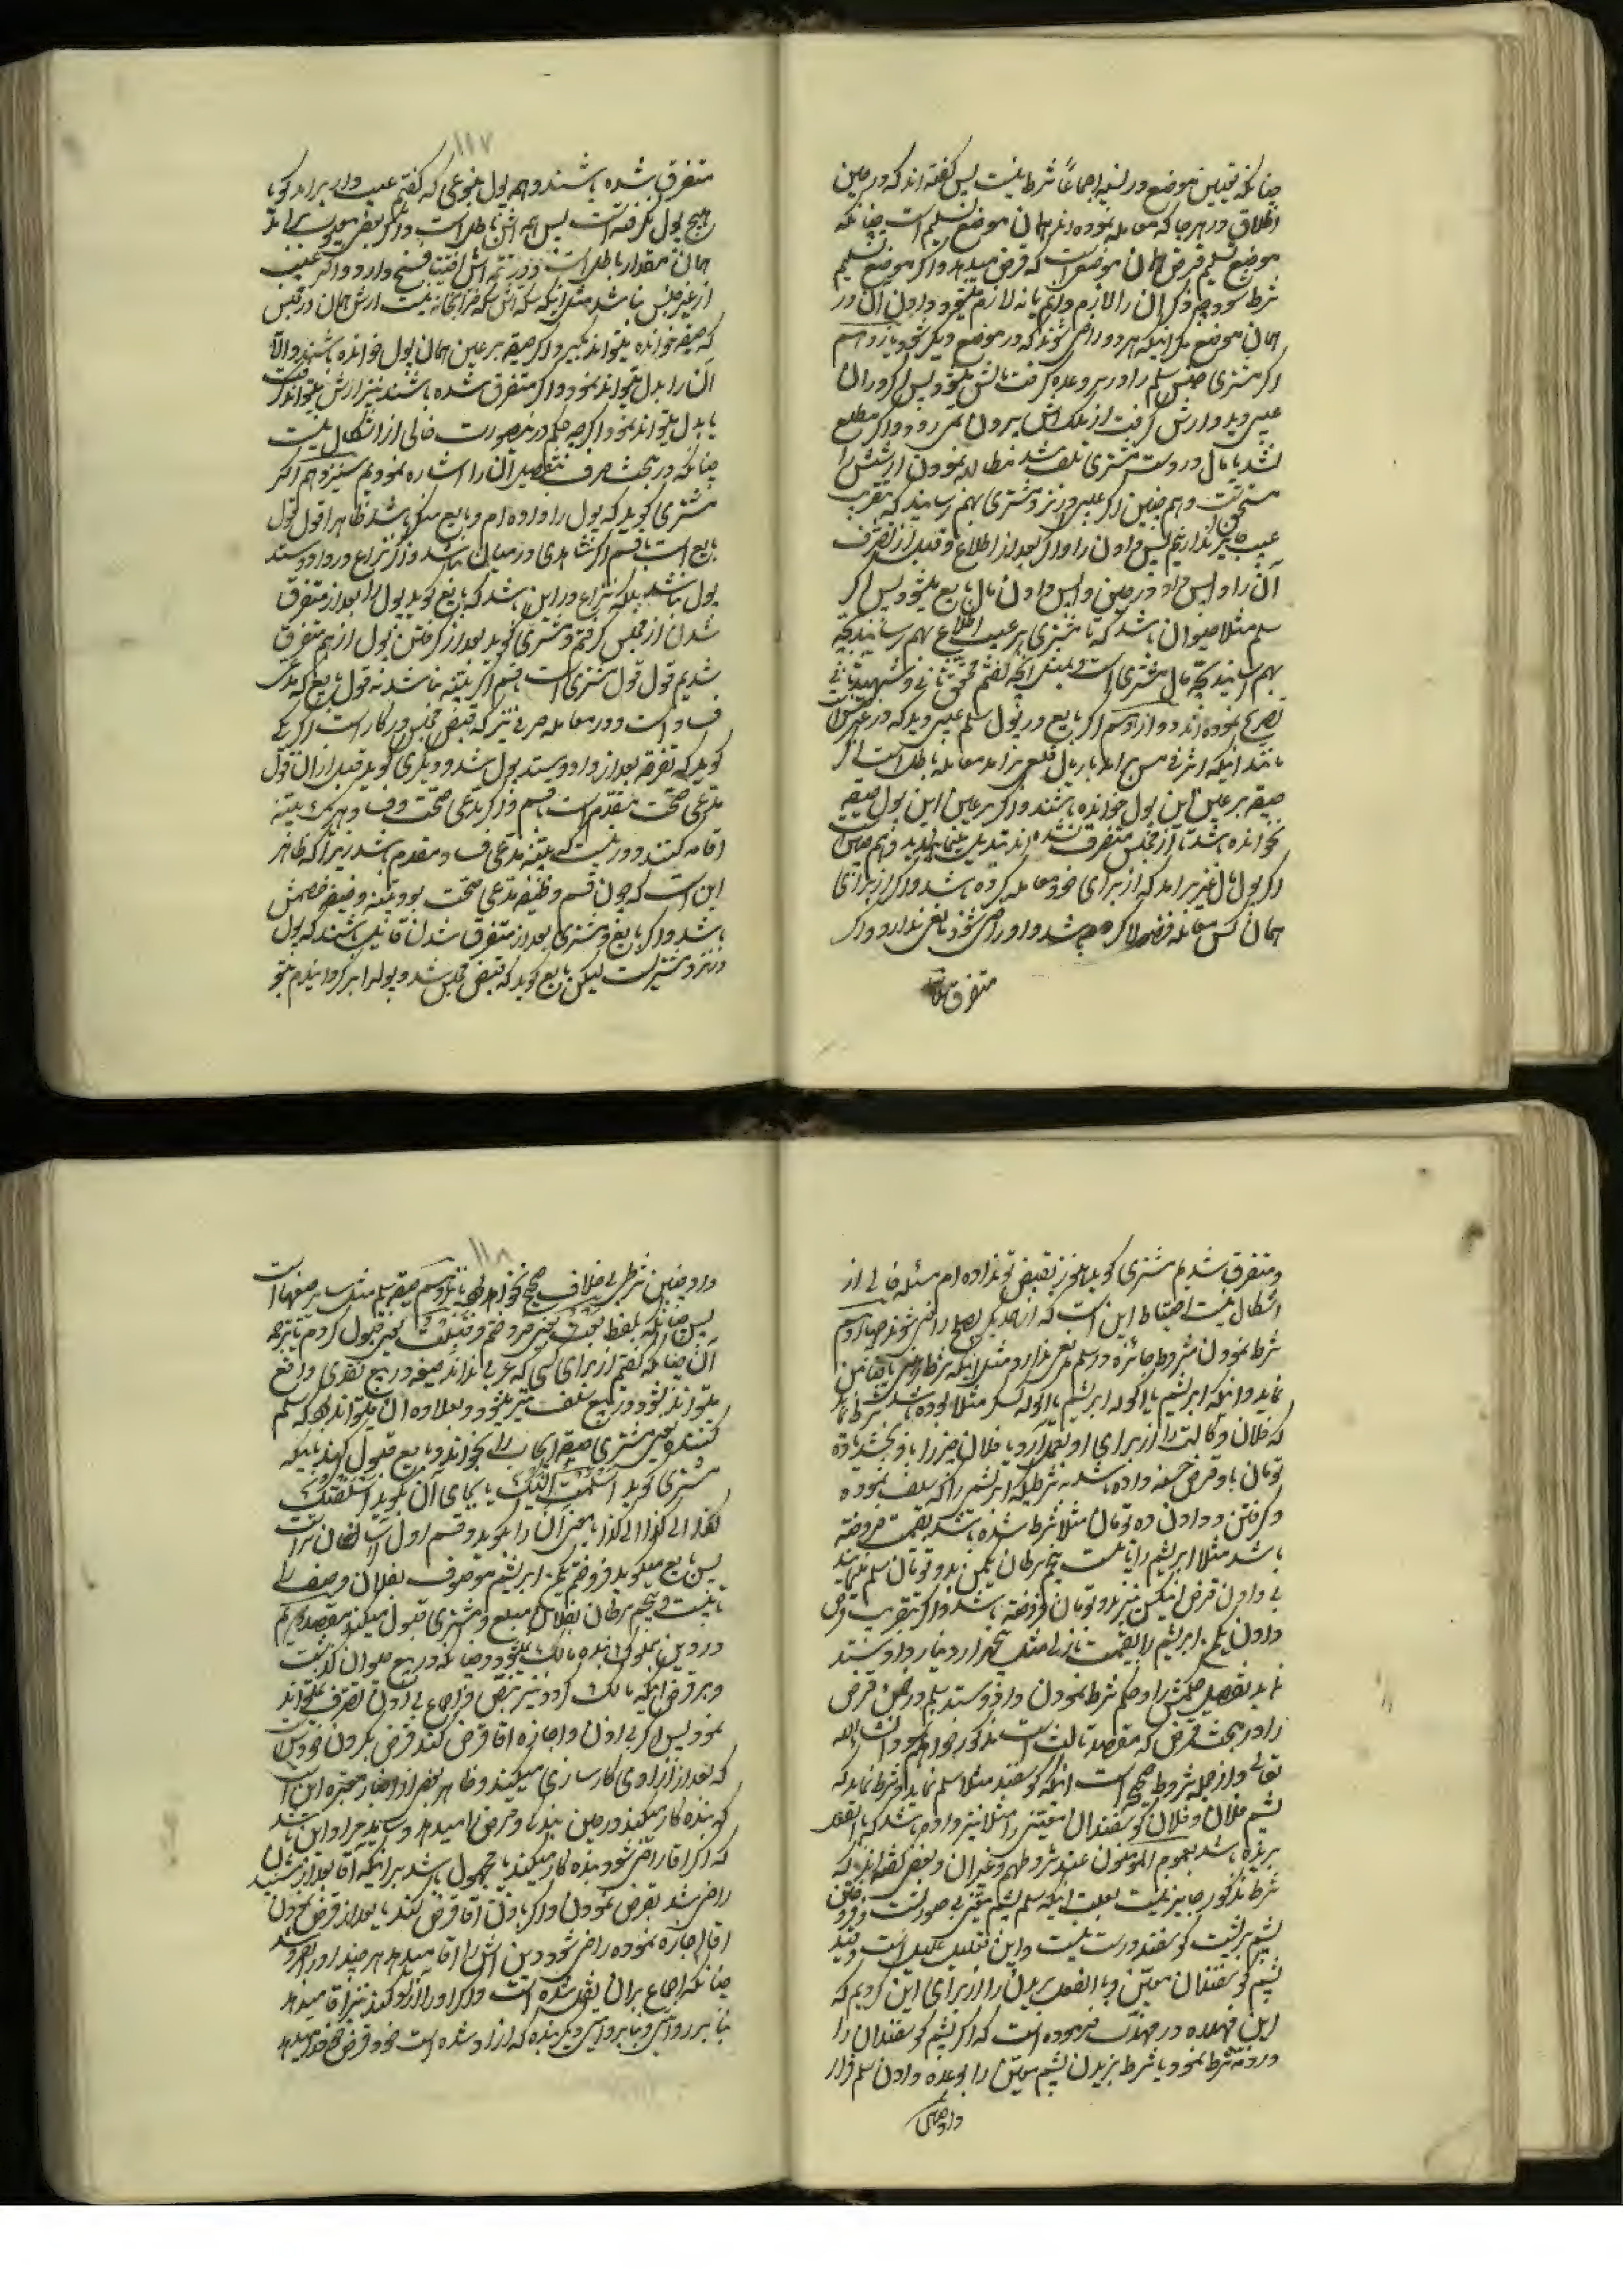 چنانکه تعیین موضع در نسیه اجماعاً شرط نیست پس گفته اند که در حین
اطلاق در هر جا که معامله نموده اند همان موضع تسلیم است چنانکه
موضع تسلیم قرض همان موضع است که قرض میدهد و اگر موضع تسلیم
شرط شود چه ذکر آن را لازم دانیم یا نه لازم میشود دادن آن در
همان موضع مگر اینکه هر دو راضی شوند که در موضع دیگر بشود یازدهم
اگر مشتری جنس سلم را در سر وعده گرفت مالش میشود پس اگر در آن
عیبی دید و ارش گرفت از ملک اش بیرون نمی رود و اگر مطلع
نشد تا مال در دست مشتری تلف شد مطالبه نمودن ارشش را
مستحق است و هم چنین اگر عیبی در نزد مشتری بهم رسانید که بتقریب
عیب سابق نداریم پس دادن را و اگر بعد از اطلاع و قبل از تصرف
آن را واپس داد در حین واپس دادن مال بایع میشود پس اگر
سلم مثلا حیوان باشد که تا مشتری بر عیب اطلاع بهم رسانید بچه
بهم رسانید بچه مال مشتری است و بمعنی آنچه گفتم محقق ثانی و شهید ثانی
تصریح نموده اند دوازدهم اگر بایع در پول سلم عیبی دید که در غیر جنس
مانند اینکه اشرفی مس برآمد یا ریال قلعی برآمد معامله باطل است اگر
صیغه بر عین این پول خوانده باشند و اگر بر عین این پول صیغه
نخوانده باشند تا از مجلس متفرق نشده اند تبدیل مینمایند و هم چنین است
اگر پول مال غیر برآمد که از برای خود معامله کرده باشد و اگر از برای
همان کس معامله فضولا کرده باشد و او راضی شود نقصی ندارد و اگر
متفرق
۱۱۷
متفرق شده باشند و همه پول بنوعی که گفتم عیب دار برآمد گویا
هیچ پول نگرفته است پس همه اش باطل است و اگر بعض معیوب برآید
همان مقدار باطل است و در تتمه اش اختیار فسخ دارد و اگر عیب
از غیر جنس نباشد مثل اینکه سکه اش سکه خزانه نیست ارش همان در مجلس
که صیغه خوانده میتواند بگیرد اگر صیغه بر عین همان پول خوانده باشند و الا
آن را بدل میتواند نمود و اگر متفرق شده باشند نیز ارش میتواند گرفت
یا بدل میتواند نمود اگر چه حکم در این صورت خالی از اشکال نیست
چنانکه در بحث صرف بتفصیل آن را اشاره نمودیم سیزدهم اگر
مشتری گوید که پول را داده ام و بایع منکر باشد ظاهرا قول قول
بایع است با قسم اگر شاهدی در میان نباشد و اگر نزاع در داد و ستد
پول نباشد بلکه نزاع در این باشد که بایع گوید پول را بعد از متفرق
شدن از مجلس گرفتم و مشتری گوید بعد از گرفتن پول از هم متفرق
شدیم قول قول مشتری است با قسم اگر بینه نباشد نه قول بایع که مدعی
فساد است و در معامله صرفی نیز که قبض مجلس در کار است اگر یکی
گوید که تفرقه بعد از داد و ستد پول شد و دیگری گوید قبل از آن قول
مدعی صحت مقدم است با قسم و اگر مدعی صحت و فساد هر یک بینه
اقامه کنند دور نیست که بینه مدعی فساد مقدم باشد زیرا که ظاهر
این است که چون قسم وظیفه مدعی صحت بود بینه وظیفه خصمش
باشد و اگر بایع و مشتری بعد از متفرق شدن قایل باشند که پول
در نزد مشتری است لیکن بایع گوید که قبض مجلس شد و پول را بر گردانیدم بتو
و متفرق شدیم مشتری گوید هنوز بقبض تو نداده ام مسئله خالی از
اشکال نیست احتیاط این است که از همدیگر بصلح راضی شوند چهاردهم
شرط نمودن شروط جائزه در سلم نقصی ندارد مثل اینکه شرط رهن یا ضامن
نماید و اینکه ابریشم باکوله ابریشم باکوله مثلا بوده باشد شرط نماید
که فلان وکالت را از برای او بعمل آرد یا فلان چیز را باو بخشد یا ده
تومان باو قرض حسنه داده باشد بشرطیکه ابریشم را که سلف نموده
و گرفتن و دادن ده تومان مثلا شرط شده باشد بقیمت فروخته
باشد مثلا ابریشم را تا بیست پنجم سرطان یکمن بدو تومان سلم مینمایند
بی دادن قرض لیکن نیز بدو تومان فروخته باشد و اگر بتقریب قرض
دادن یکمن ابریشم را بقیمت نازل مثل پنجهزار دینار داد و ستد
نماید بتفصیل حکمش را و حکم شرط نمودن داد و ستد سلم در ضمن قرض
را در مبحث قرض که مقصد ثالث است مذکور خواهم نمود انشاءالله
تعالی و از جمله شروط صحیح است اینکه گوسفند مثلا سلم نماید و شرط نماید که
پشم فلان و فلان گوسفندان معینی را مثلا نیز داده باشد که بالفعل
بریده باشد بعموم المؤمنون عند شروطهم و غیر آن و بعضی گفته اند که
شرط مذکور جایز نیست بعلت اینکه سلم پشم معین بی صورت است و فروختن
پشم بر پشت گوسفند درست نیست و این تعلیل علیل است و قید
پشم گوسفندان معین و بالفعل بریدن را از برای این کردیم که
ابن فهد در مهذب فرموده است که اگر پشم گوسفندان را
در ذمه شرط نمود یا شرط بریدن پشم معین را بوعده دادن سلم قرار
داد چنین
۱۱۸
داد چنین شرطی بی خلاف صحیح نخواهد بود پانزدهم صیغه سلم مثل سایر صیغها است
پس چنانکه بلفظ بعت یعنی فروختم و قبلت یعنی قبول کردم یا ترجمه
آن چنانکه گفتیم از برای کسی که عربی نداند صیغه در بیع نقدی واقع
میتواند بشود در بیع سلف نیز میشود و بعلاوه آن میتواند بود که سلم
کننده یعنی مشتری صیغه ایجاب را بخواند و بایع قبول کند باینکه
مشتری گوید اسلمت الیک یا بجای آن بگوید اسلفتک
کذا الی کذا الی کذا یا معنی آن را بگوید و قسم اول آسان تر است
پس بایع میگوید فروختم یکمن ابریشم موصوف بفلان وصف را
تا بیست و پنجم سرطان بفلان مبلغ و مشتری قبول میکند مقصد دویم
در دین مملوک بنده مالک میشود چنانکه در بیع حیوان گذشت
و بر فرض اینکه مالک گردد نیز بنص و اجماع بی اذن تصرف نمیتواند
نمود پس اگر بی اذن و اجازه آقا قرض کند قرض بگردن خودش است
که بعد از آزادی کارسازی میکند و ظاهر بعض از اخبار معتبره این است
که بنده کار میکند در حین بندگی و قرض را میدهد و شاید مراد این باشد
که اگر آقا راضی شود بنده کار میکند یا محمول باشد بر اینکه آقا بعد از شنیدن
راضی شد بقرض نمودن و اگر باذن آقا قرض کند یا بعد از قرض نمودن
آقا اجازه نموده راضی شود دین اش را آقا میدهد هر چند او را بفروشد
چنانکه اجماع بر آن نقل شده است و اگر او را آزاد کند نیز آقا میدهد
بنا بر روایتی و بنا بر روایتی دیگر بنده که آزاد شده است خود قرض خود را میدهد